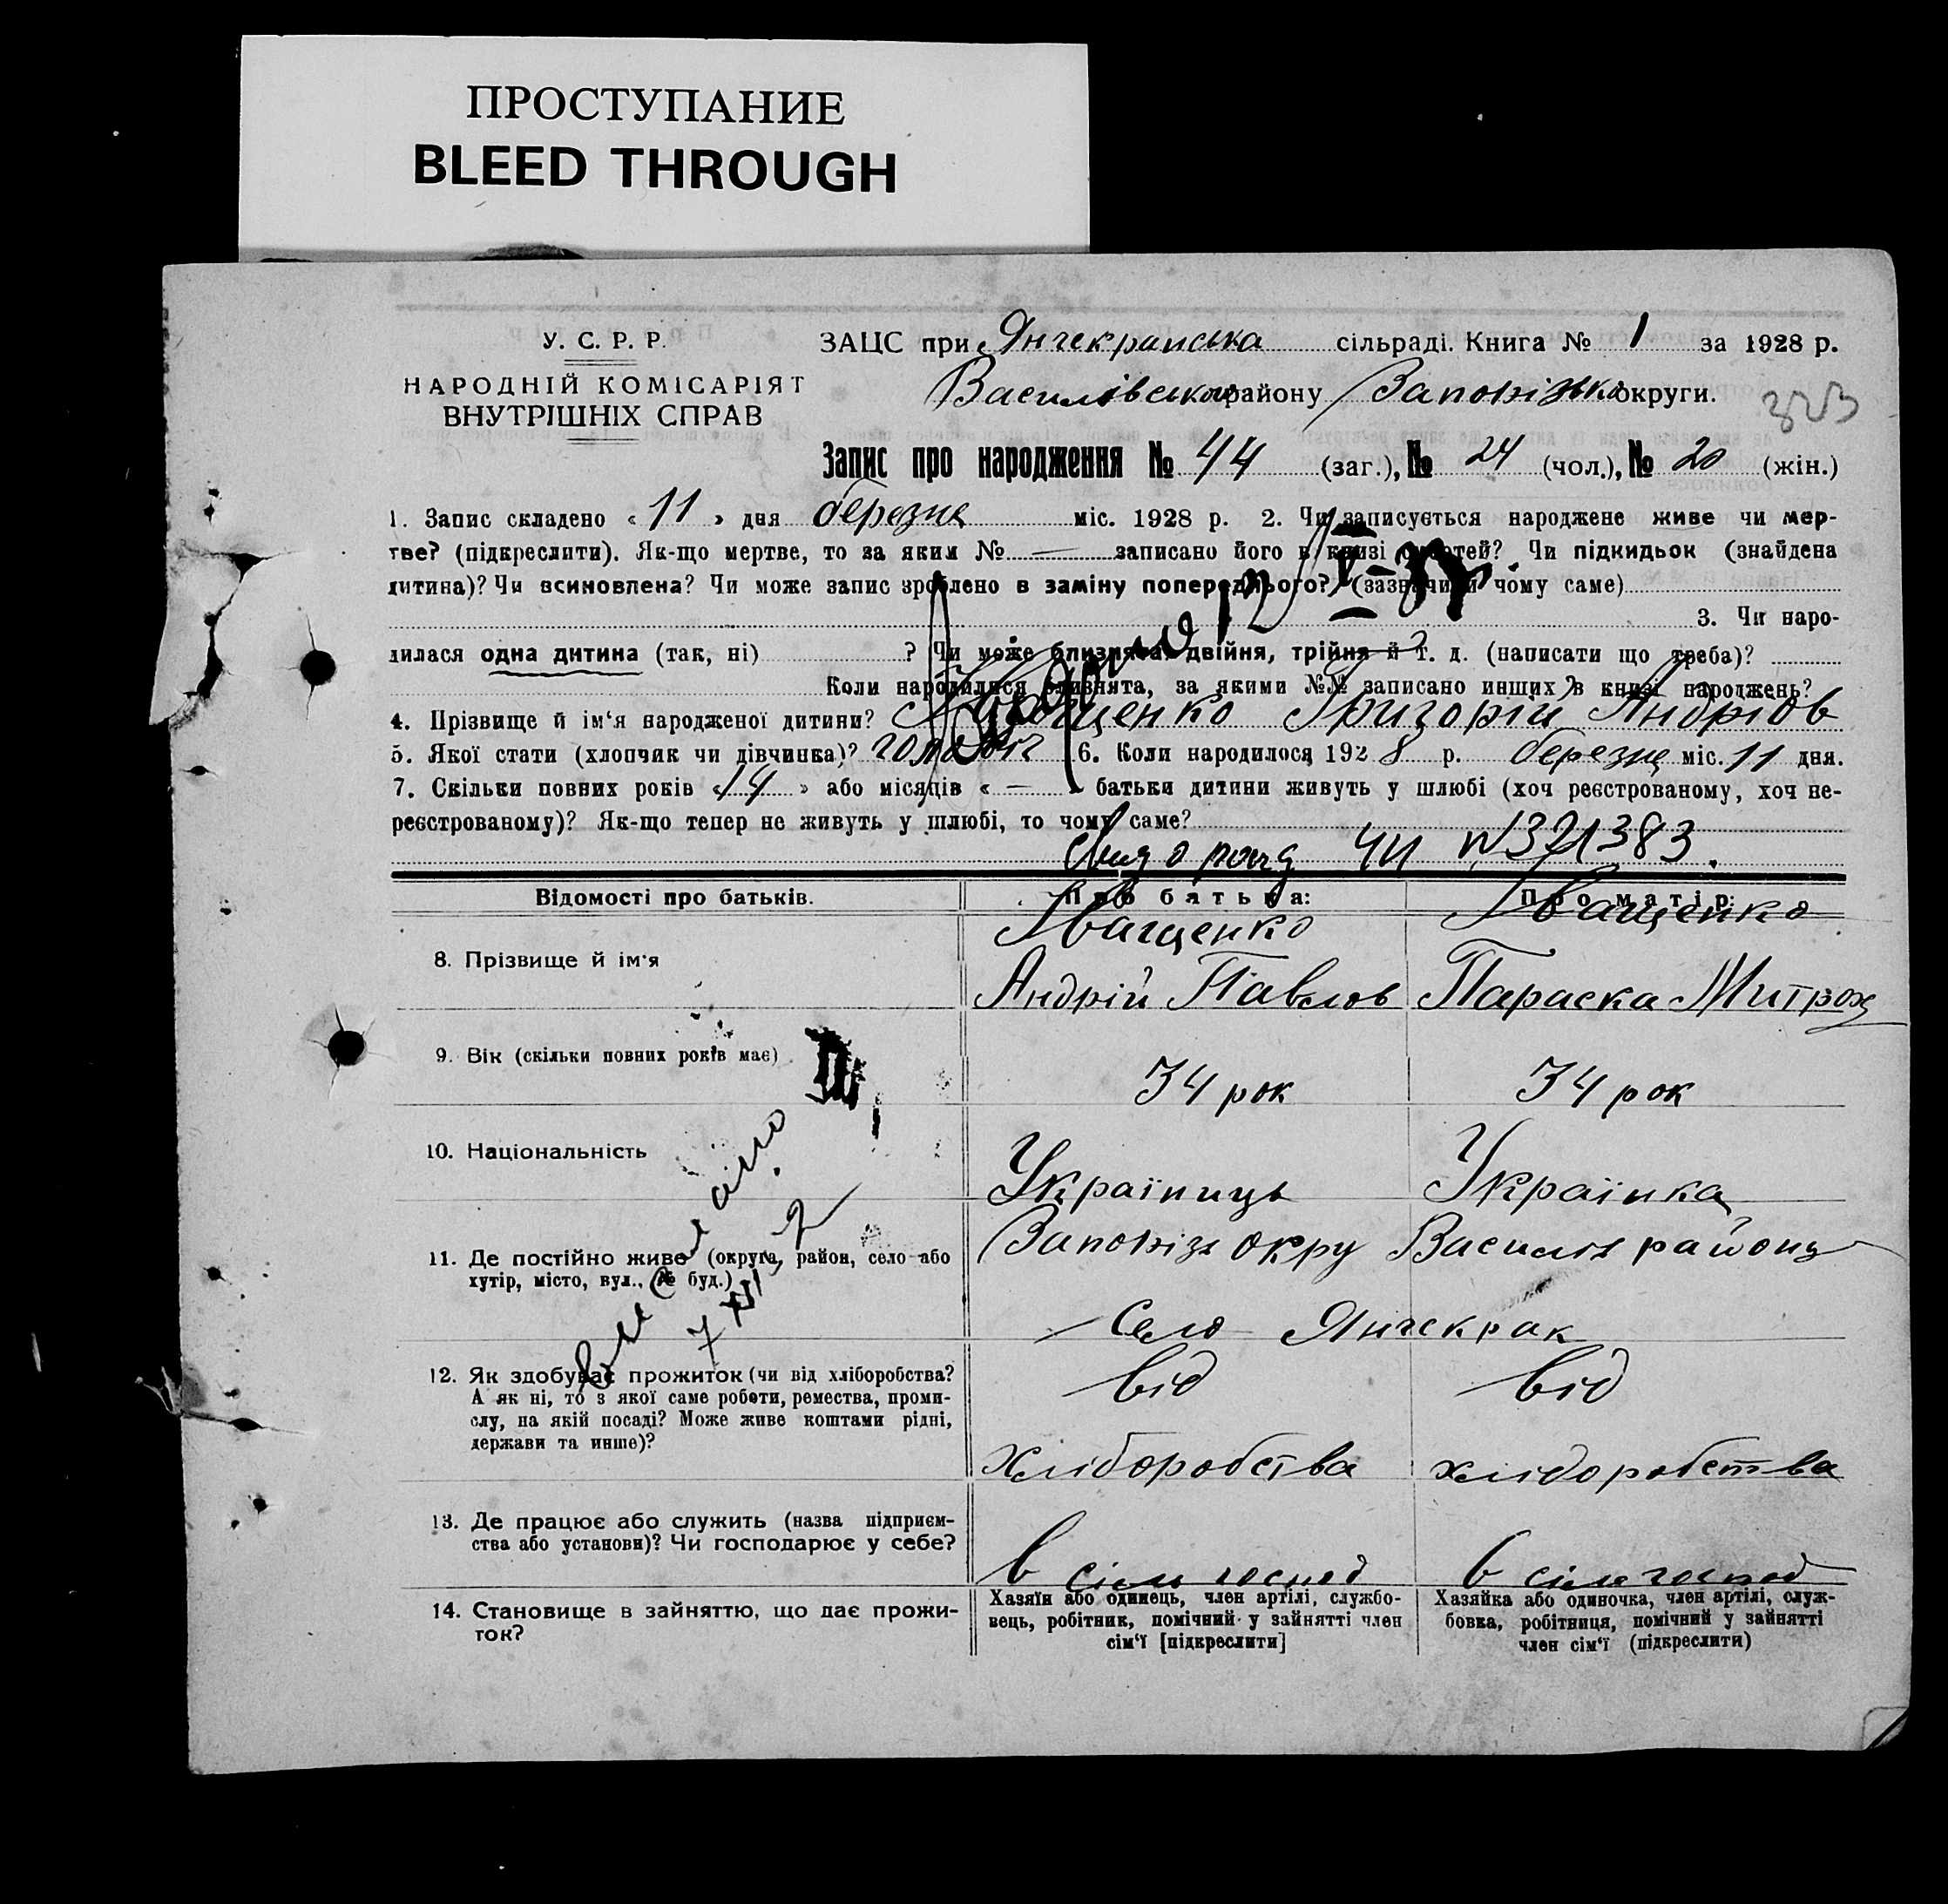 ПРОСТУПАНИЕ
BLEED THROUGH
У. С. Р. Р.
НАРОДНІЙ КОМІСАРІЯТ
ВНУТРІШНІХ СПРАВ
ЗАЦС при Янчекрапська сільраді. Книга № 1 за 1928 р.
Василівського району Запоріжько округи.
323
Запис про народження № 44 (заг.), № 24 (чол.), № 20 (жін.)
1. Запис складено « 11 » дня березня міс. 1928 р. 2. Чи записується народжене живе чи мер-
тве? (підкреслити). Як-що мертве, то за яким № — записано його в книзі смертей? Чи підкидьок (знайдена
дитина)? Чи всиновлена? Чи може запис зроблено в заміну попереднього? (зазначити чому саме)
3. Чи наро-
дилася одна дитина (так, ні) ? Чи може близнята: двійня, трійня й т. д. (написати що треба)?
Коли народилися близнята, за якими №№ записано инших в книзі народжень?
4. Прізвище й ім‘я народженої дитини? Іващенко Григорій Андріов
5. Якої стати (хлопчик чи дівчинка)? 6. Коли народилося 1928 р. березня міс. 11 дня.
7. Скільки повних років « 14 » або місяців « — батьки дитини живуть у шлюбі (хоч реєстрованому, хоч не-
реєстрованому)? Як-що тепер не живуть у шлюбі, то чому саме?
ЧИ № 371383.
Відомості про батьків. Про батька: Про матір:
Іващенко Іващенко
8. Прізвище й ім‘я Андрій Павлов Параска Митроф
9. Вік (скільки повних років має) 34 рок 34 рок
10. Національність Україниць Українка
11. Де постійно живе (округа, район, село або Запоріз окру Василів району
хутір, місто, вул., № буд.)
Село Янчекрак
12. Як здобуває прожиток (чи від хліборобства? від від
А як ні, то з якої саме роботи, ремества, проми-
слу, на якій посаді? Може живе коштами рідні,
держави та инше)?
хліборобства хліборобства
13. Де працює або служить (назва підприєм-
ства або установи)? Чи господарює у себе?
в сіль господ в сіль господ
14. Становище в зайняттю, що дає прожи-
ток?
Хазяїн або одинець, член артілі, службо-
вець, робітник, помічний у зайнятті член
сім‘ї [підкреслити]
Хазяйка або одиночка, член артілі, служ-
бовка, робітниця, помічний у зайнятті
член сім‘ї (підкреслити)